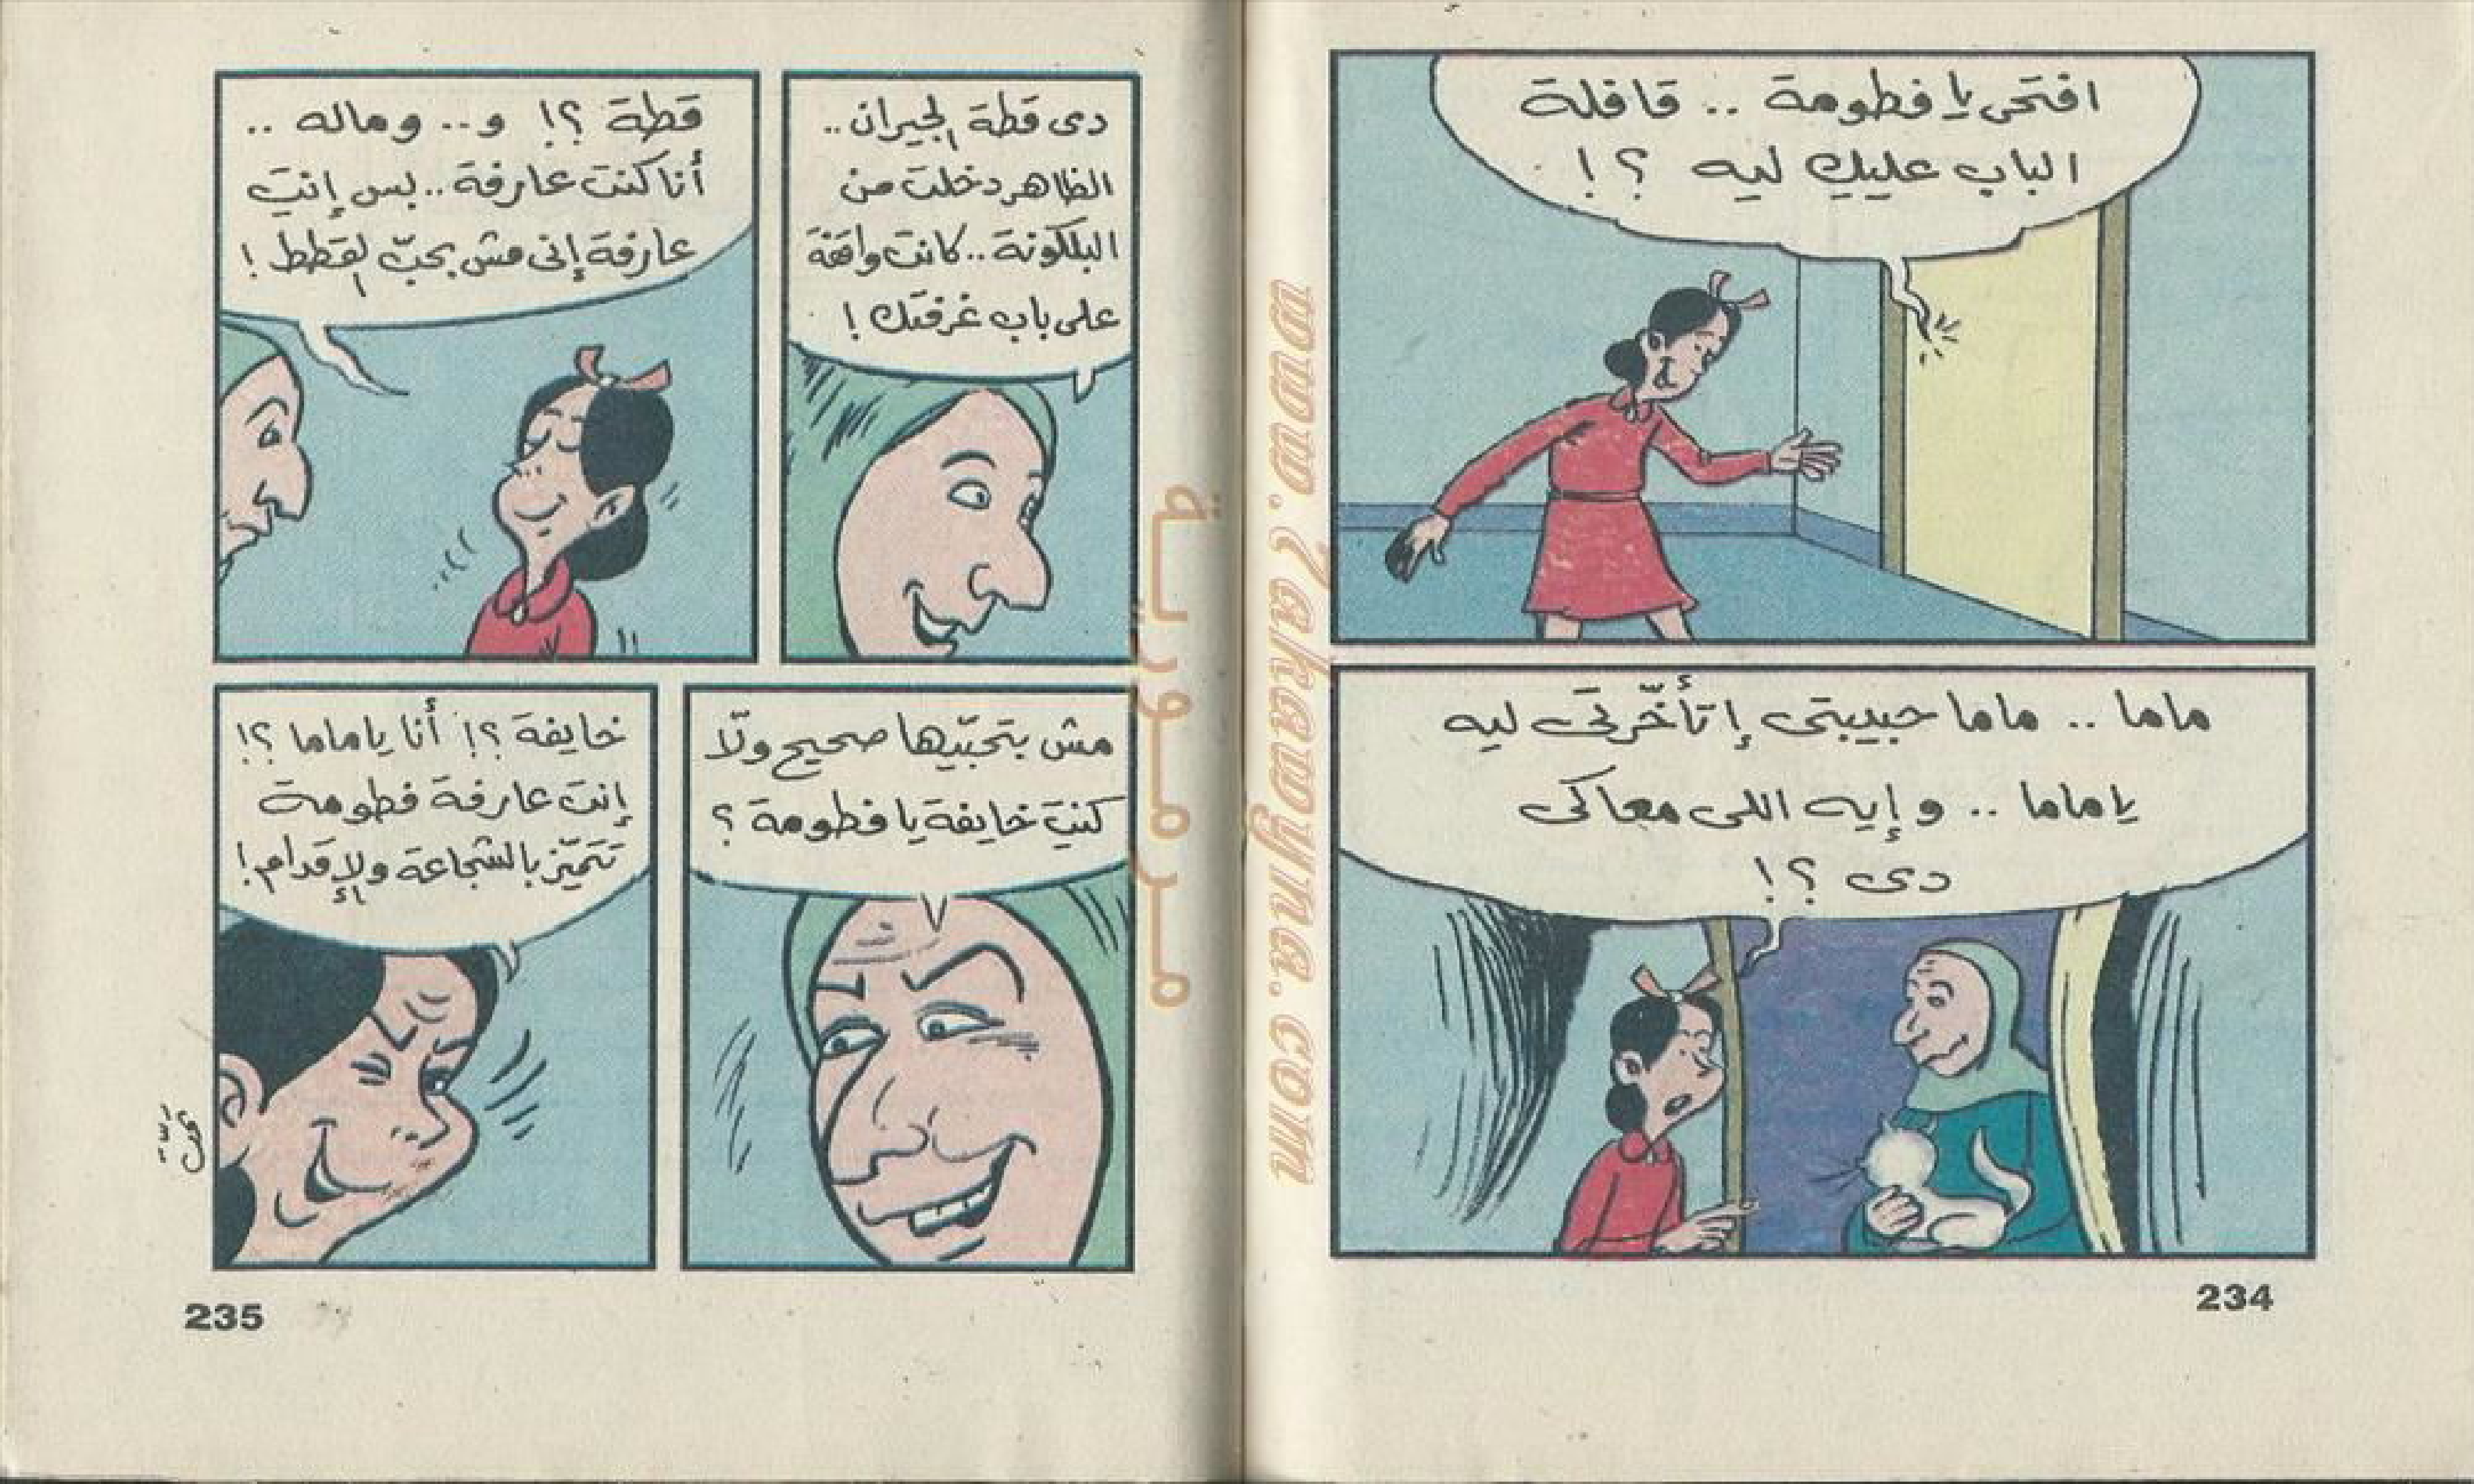 افتحى يا فطومة .. قافلة
الباب عليكِ ليه ؟!
ماما .. ماما حبيبتى إتأخّرتى ليه
يا ماما .. وإيه اللى معاكى
دى ؟!
234
دى قطة الجيران ..
الظاهر دخلت من
البلكونة .. كانت واقفة
على باب غرفتك !
قطة ؟! و.. وماله ..
أنا كنت عارفة .. بس إنتِ
عارفة إنى مش بحبّ القطط !
مش بتحبّيها صحيح ولّا
كنتِ خايفة يا فطومة ؟
خايفة ؟! أنا يا ماما ؟!
إنتِ عارفة فطومة
تتميّز بالشجاعة والإقدام !
تمّت
235
مرمورية
www.7akawyna.com